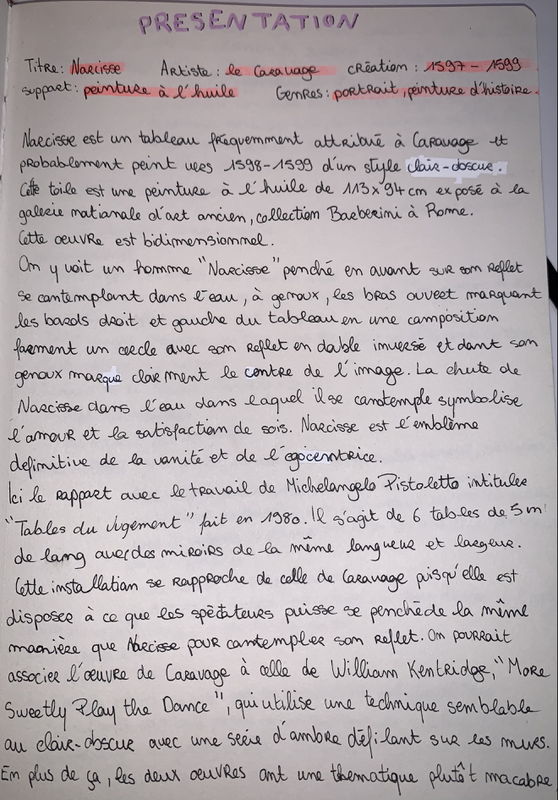 PRESENTATION
Titre: Narcisse Artiste: le Caravage création: 1597 - 1599
support: peinture à l'huile Genres: portrait, peinture d'histoire.
Narcisse est un tableau frequemment attribué à Caravage et
probablement peint vers 1598-1599 d'un style clair-obscur.
Cette toile est une peinture à l'huile de 113x94 cm exposé à la
galerie nationale d'art ancien, collection Barberini à Rome.
Cette oeuvre est bidimensionnel.
On y voit un homme "Narcisse" penché en avant sur son reflet
se contemplant dans l'eau, à genoux, les bras ouvert marquant
les bords droit et gauche du tableau en une composition
forment un cercle avec son reflet en double inversé et dont son
genoux marque clairment le centre de l'image. La chute de
Narcisse dans l'eau dans laquel il se contemple symbolise
l'amour et la satisfaction de sois. Narcisse est l'emblème
definitive de la vanité et de l'égocentrice.
Ici le rapport avec le travail de Michelangelo Pistoletto intitulee
"Tables du Jugement" fait en 1980. Il s'agit de 6 tables de 5 m
de long avec des miroirs de la même longueur et largeur.
Cette installation se rapproche de celle de Caravage puisqu'elle est
disposer à ce que les spéctateurs puisse se penché de la même
manière que Narcisse pour contempler son reflet. On pourrait
associer l'oeuvre de Caravage à celle de William Kentridge, "More
Sweetly Play the Dance", qui utilise une technique semblable
au clair-obscur avec une série d'ombre défilant sur les murs.
En plus de ça, les deux oeuvres ont une thematique plutôt macabre